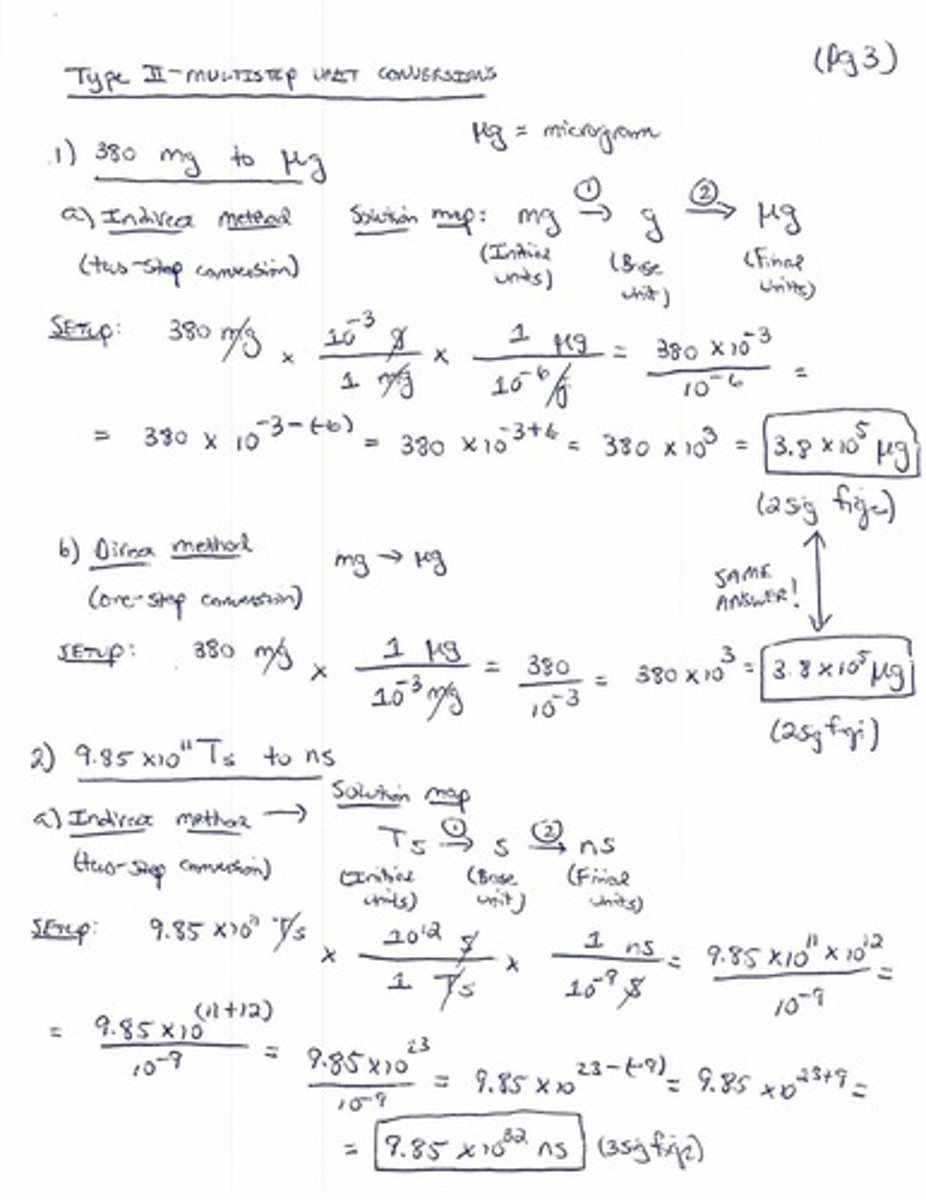 (Pg 3)
Type II - MULTISTEP UNIT CONVERSIONS
µg = microgram
1) 380 mg to µg
a) Indirect method Solution map: mg ① → g ② → µg
(two-step conversion) (Initial units) (Base unit) (Final units)
SETUP: 380 mg × 10⁻³ g / 1 mg × 1 µg / 10⁻⁶ g = 380 × 10⁻³ / 10⁻⁶ =
= 380 × 10⁻³⁻⁽⁻⁶⁾ = 380 × 10⁻³⁺⁶ = 380 × 10³ = 3.8 × 10⁵ µg
(2 sig figs)
b) Direct method mg → µg
(one-step conversion)
SAME ANSWER!
SETUP: 380 mg × 1 µg / 10⁻³ mg = 380 / 10⁻³ = 380 × 10³ = 3.8 × 10⁵ µg
(2 sig figs)
2) 9.85 × 10¹¹ Ts to ns
a) Indirect method → Solution map
(two-step conversion) Ts ① → s ② → ns
(Initial units) (Base unit) (Final units)
SETUP: 9.85 × 10¹¹ Ts × 10¹² s / 1 Ts × 1 ns / 10⁻⁹ s = 9.85 × 10¹¹ × 10¹² / 10⁻⁹ =
= 9.85 × 10⁽¹¹⁺¹²⁾ / 10⁻⁹ = 9.85 × 10²³ / 10⁻⁹ = 9.85 × 10²³⁻⁽⁻⁹⁾ = 9.85 × 10²³⁺⁹ =
= 9.85 × 10³² ns (3 sig figs)